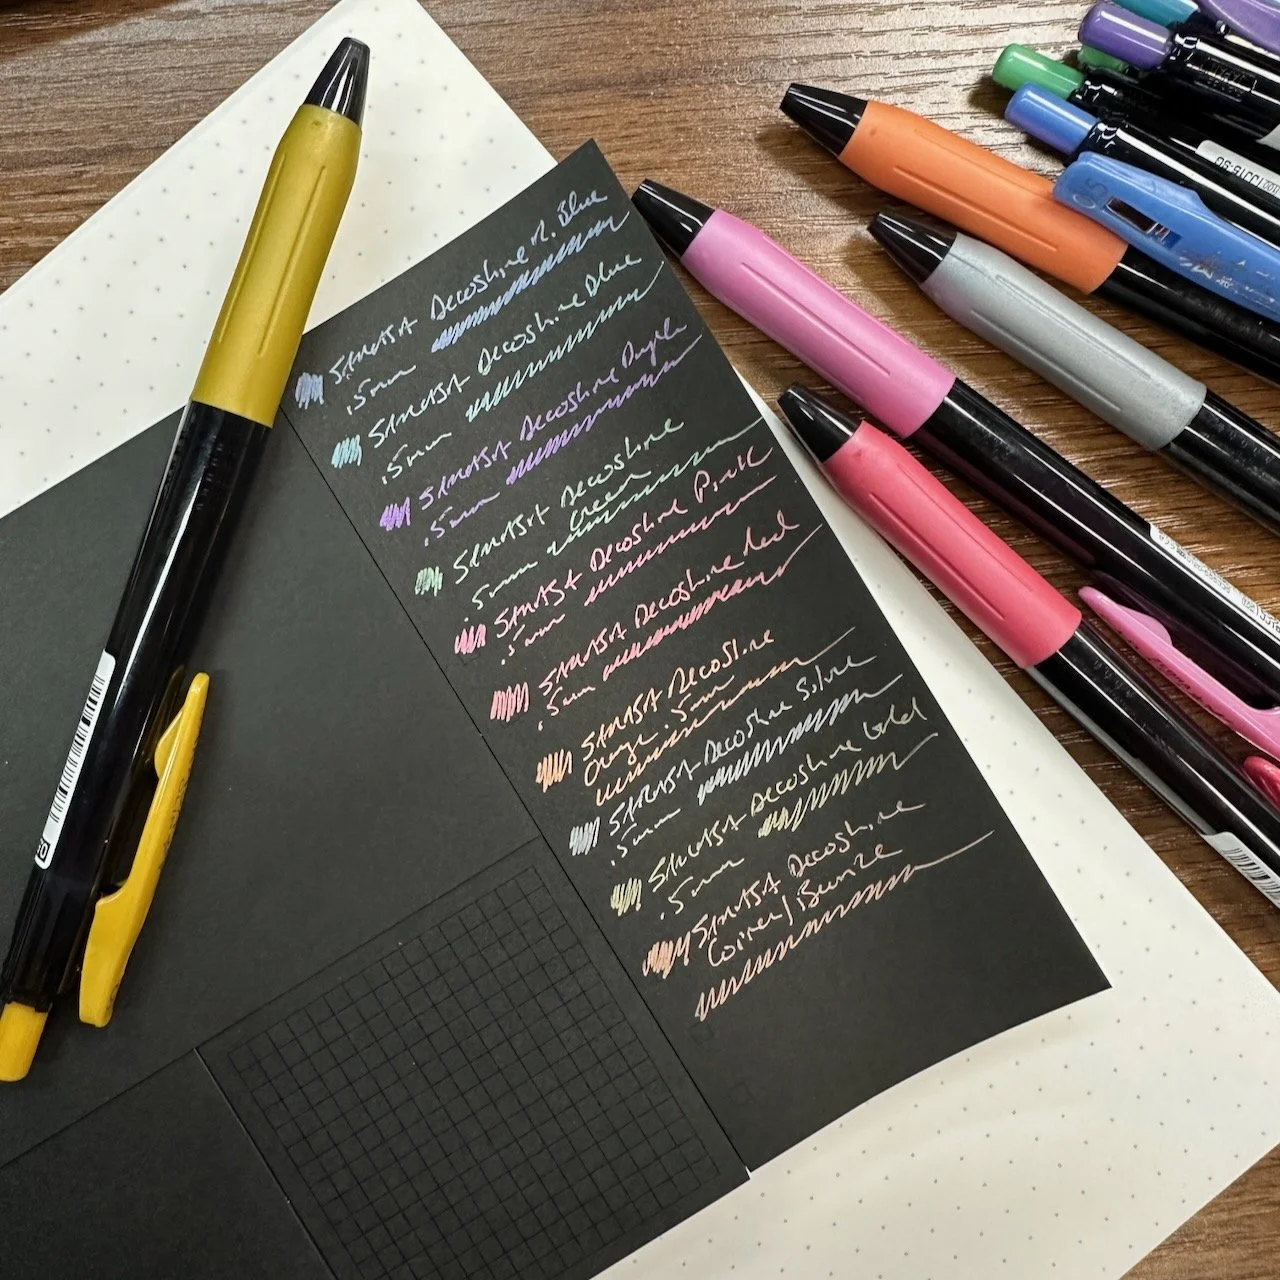 SARASA Decoshine M. Blue
.5mm
SARASA Decoshine Blue
.5mm
SARASA Decoshine Purple
.5mm
SARASA Decoshine
.5mm Green
SARASA Decoshine Pink
.5mm
SARASA Decoshine Red
.5mm
SARASA Decoshine
Orange .5mm
SARASA Decoshine Silver
.5mm
SARASA Decoshine Gold
.5mm
SARASA Decoshine
Copper/Bronze
0.5